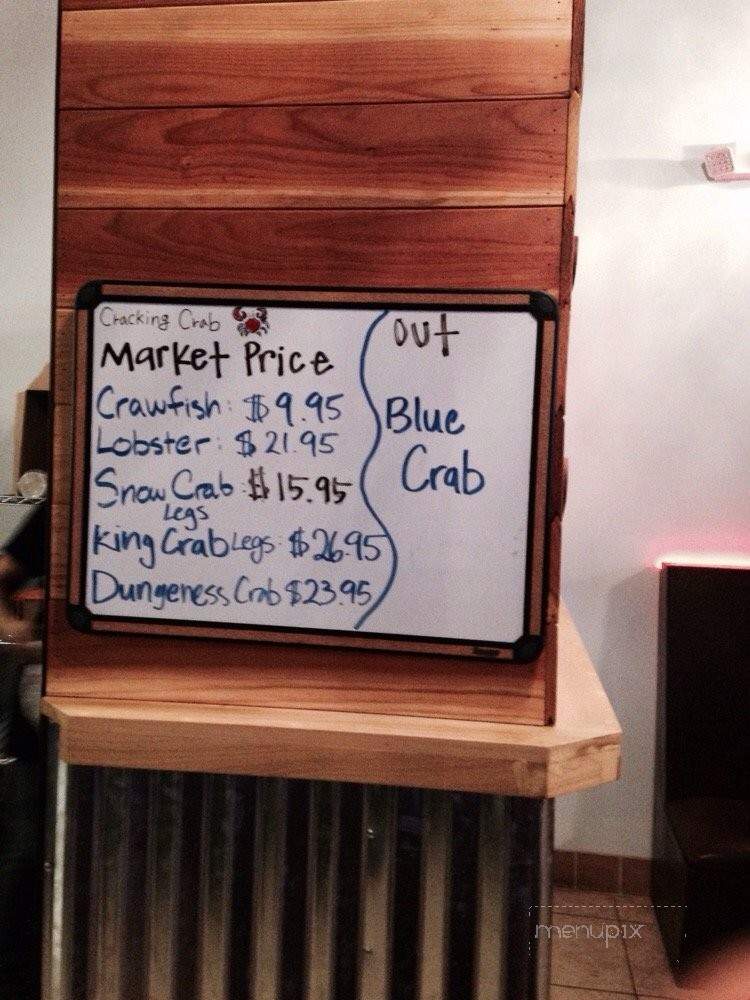 Cracking Crab
Market Price
Crawfish: $9.95
Lobster: $21.95
Snow Crab: $15.95
Legs
King Crab Legs: $26.95
Dungeness Crab $23.95
OUT
Blue
Crab
menupix